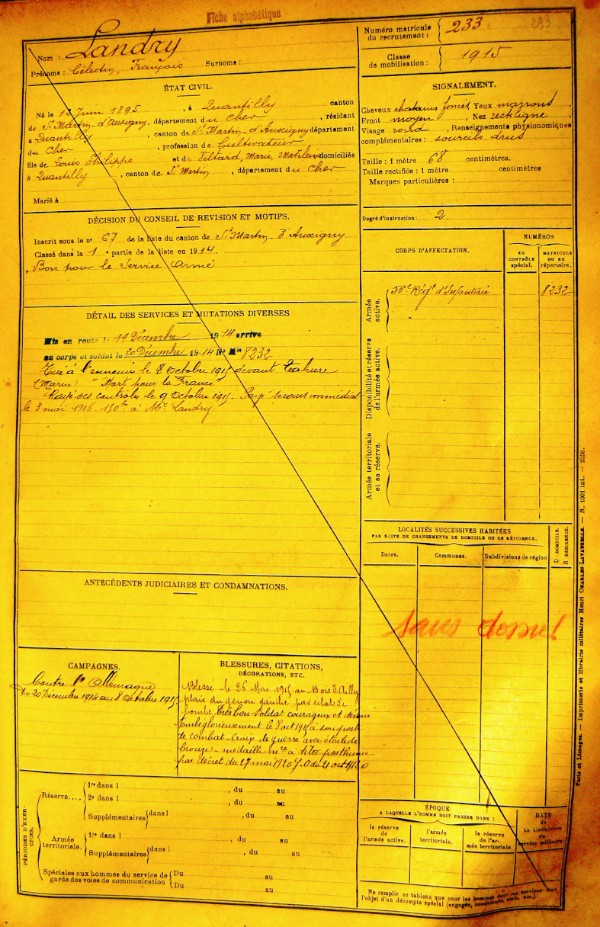 Fiche alphabétique
Nom : Landry
Prénoms : Célestin, Français Surnoms :
Numéro matricule du recrutement : 233
Classe de mobilisation : 1915
ÉTAT CIVIL.
Né le 13 Juin 1895, à Quantilly canton
de St Martin d'Auxigny, département du Cher, résidant
à Quantilly, canton de St Martin-d'Auxigny département
du Cher, profession de Cultivateur
fils de Louis Philippe
et de Marie, domiciliés
à Quantilly, canton de St Martin, département du Cher
Marié à
SIGNALEMENT.
Cheveux chatains foncés Yeux marrons
Front moyen, Nez rectiligne
Visage rond Renseignements physionomiques
complémentaires : sourcils drus
Taille : 1 mètre 68 centimètres.
Taille rectifiée : 1 mètre centimètres
Marques particulières :
Degré d'instruction : 2
DÉCISION DU CONSEIL DE REVISION ET MOTIFS.
Inscrit sous le n° 67 de la liste du canton de St Martin d'Auxigny
Classé dans la 1 e partie de la liste en 1914
Bon pour le Service Armé
DÉTAIL DES SERVICES ET MUTATIONS DIVERSES
Mis en route le 19 Décembre 1914 arrivé
au corps et soldat le 20 Décembre 1914 N° Mle 8232
Tué à l'ennemi le 8 Octobre 1915 devant Tahure
(Marne) "Mort pour la France"
Rayé des contrôles le 9 Octobre 1915. secours immédiat
le 3 mai 1916 150f à Mr Landry
CORPS D'AFFECTATION.
NUMÉROS
AU CONTRÔLE spécial.
MATRICULE OU AU répertoire.
Armée active.
Régt d'Infanterie 8232
Disponibilité et réserve de l'armée active.
Armée territoriale et sa réserve.
ANTÉCÉDENTS JUDICIAIRES ET CONDAMNATIONS.
LOCALITÉS SUCCESSIVES HABITÉES
PAR SUITE DE CHANGEMENTS DE DOMICILE OU DE RÉSIDENCE.
Dates. Communes. Subdivisions de région. D DOMICILE. R RÉSIDENCE.
CAMPAGNES.
Contre l'Allemagne
du 20 Décembre 1914 au 8 Octobre 1915
BLESSURES, CITATIONS, DÉCORATIONS, ETC.
Blessé le 26 Mai 1915 au Bois d'Ailly
plaie du genou gauche par éclat de
bombe Très bon Soldat courageux et
tombé glorieusement le 8 oct 1915 à son poste
de combat - Croix de guerre avec étoile de
bronze - médaille mre à titre posthume
par décret du 27 mai 1920 J.O de 21 oct 1920
PÉRIODES D'EXERCICES.
Réserve....
1re dans l , du au
2e dans l , du au
Supplémentaires dans l , du au
Armée territoriale.
1re dans l , du au
Supplémentaires dans l , du au
Spéciales aux hommes du service de gardes des voies de communication
Du au
Du au
ÉPOQUE
A LAQUELLE L'HOMME DOIT PASSER DANS :
la réserve de l'armée active.
l'armée territoriale.
la réserve de l'armée territoriale.
DATE de LA LIBÉRATION du service militaire
Ne remplir ce tableau que pour les hommes dont les services font
l'objet d'un décompte spécial (engagés, condamnés, etc.)
Paris et Limoges. — Imprimerie et librairie militaires Henri CHARLES-LAVAUZELLE.